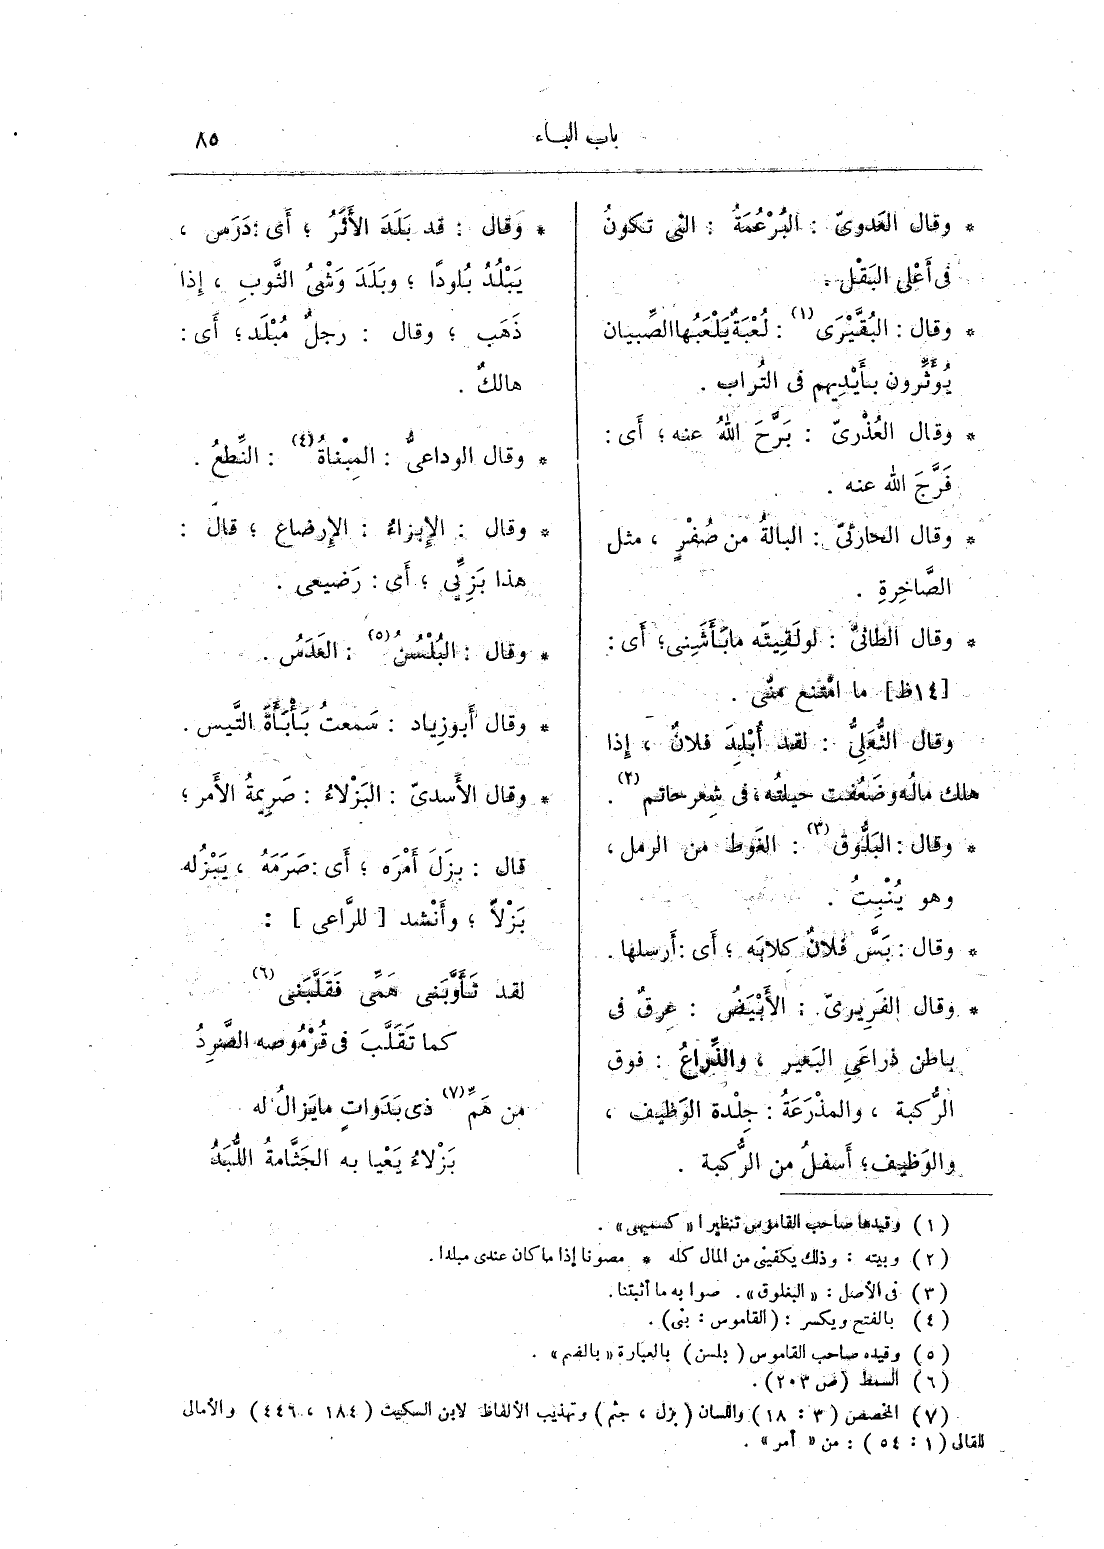 باب البـاء
٨٥
* وقال العَدوىّ : البُرْعُمَةُ : التى تكونُ
فى أَعْلى البَقْل .
* وقال : البُقَّيْرَى (١) : لُعْبَةٌ يَلْعَبُها الصِّبيان
يُؤَثِّرون بأَيْدِيهم فى التُراب .
* وقال العُذْرىّ : بَرَّحَ اللهُ عنه ؛ أَى :
فَرَّجَ الله عنه .
* وقال الحارثىّ : البالةُ من صُفْرٍ ، مثل
الصَّاخِرةِ .
* وقال الطائىّ : لو لَقِيتَه ما بَأَشَنِى ؛ أَى :
[١٤ظ] ما امْتنع منِّى .
وقال الثُّعَلِىُّ : لقد أُبْلِدَ فلانٌ ، إِذا
هلك مالُه وضَعُفت حيلتُه ، فى شِعر حاتم (٢) .
* وقال : البَلُّوق (٣) : الغَوط من الرمل ،
وهو يُنْبِتُ .
* وقال : بَسَّ فلانٌ كِلابَه ؛ أَى : أَرسلها .
* وقال الفَرِيرىّ : الأَبْيَضُ : عِرقٌ فى
باطن ذراعَىِ البَعير ، والذِّراعُ : فوق
الرُّكبة ، والمذْرَعَةُ : جِلْدة الوَظِيف ،
والوَظِيف ؛ أَسفلُ من الرُّكبة .
* وَقال : قد بَلَدَ الأَثَرُ ؛ أَى : دَرَس ،
يَبْلُدُ بُلودًا ؛ وبَلَدَ وَشْىُ الثَّوبِ ، إِذا
ذَهَب ؛ وقال : رجلٌ مُبْلَد ؛ أَى :
هالكٌ .
* وقال الوداعىُّ : المِبْناةُ (٤) : النِّطعُ .
* وقال : الإِبزاءُ : الإِرضاع ؛ قال :
هذا بَزِيِّى ؛ أَى : رَضيعى .
* وقال : البُلْسُنُ (٥) : العَدَسُ .
* وقال أَبو زِياد : سَمعتُ بَأْبَأَةَ التَّيس .
* وقال الأَسدىّ : البَزْلاءُ : صَرِيمةُ الأَمر ؛
قال : بزَلَ أَمْرَه ؛ أَى : صَرَمَهُ ، يَبْزُله
بَزْلاً ؛ وأَنْشد [ للرَّاعى ] :
لقد تَأَوَّبَنى هَمِّى فَقَلَّبَنى (٦)
كما تَقَلَّبَ فى قُرْموصه الصَّرِدُ
من هَمِّ (٧) ذى بَدَواتٍ ما يَزالُ له
بَزْلاءُ يَعْيا به الجَثَّامةُ اللُّبَدُ
(١) وقيدها صاحب القاموس تنظيرا « كسميهى » .
(٢) وبيته : وذلك يكفينى من المال كله * مصونا إذا ما كان عندى مبلدا .
(٣) فى الأصل : « البغلوق » . صوابه ما أثبتنا .
(٤) بالفتح ويكسر : (القاموس : بنى) .
(٥) وقيده صاحب القاموس ( بلسن ) بالعبارة « بالضم » .
(٦) السمط (ص ٢٠٣) .
(٧) المخصص (٣ : ١٨) واللسان ( بزل ، جثم ) وتهذيب الألفاظ لابن السكيت ( ١٨٤ ، ٤٤٦ ) والأمالى
للقالى (١ : ٥٤) : من « أمر » .